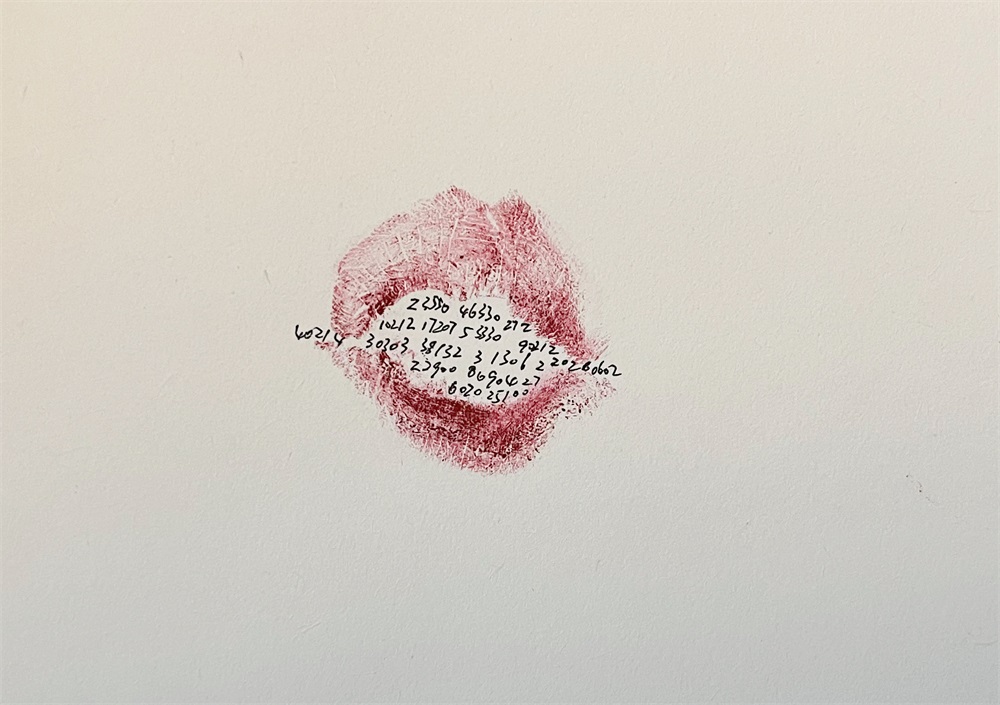 23550 46330 272
10212 17207 53330 90212
40214 30303 38132 3 1306 2 202 60602
23900 86904 27
6020 25100